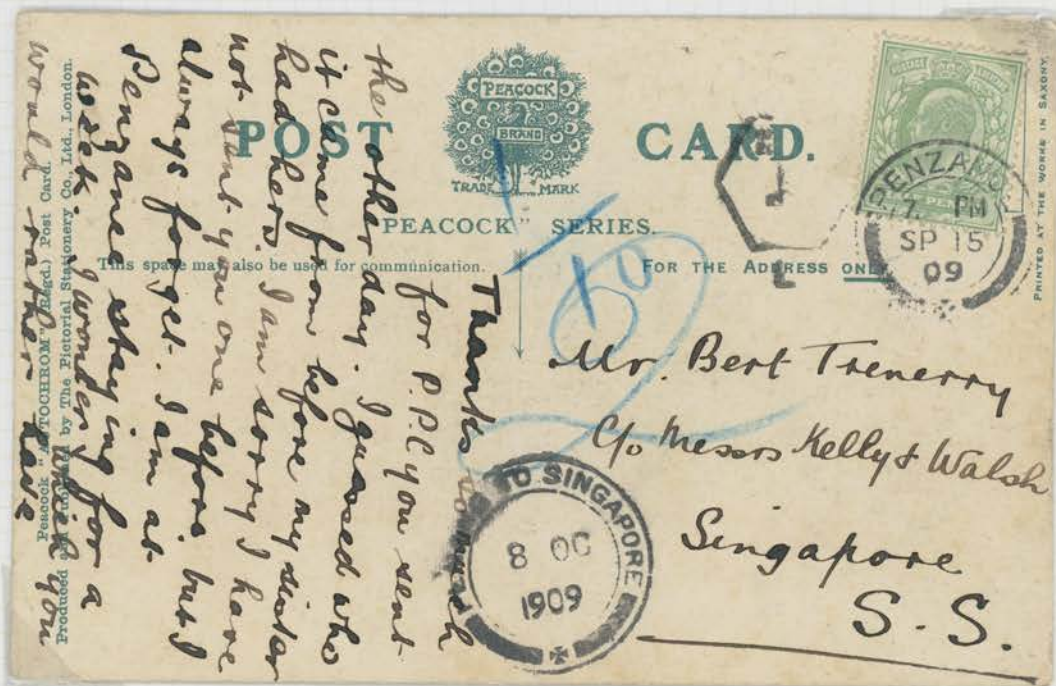 POST CARD.
PEACOCK
BRAND
TRADE MARK
"PEACOCK" SERIES.
This space may also be used for communication.
FOR THE ADDRESS ONLY
PRINTED AT THE WORKS IN SAXONY.
Peacock "AUTOCHROM" (Regd.) Post Card.
Produced and Published by The Pictorial Stationery Co., Ltd., London.
PENZANCE
7. PM
SP 15
09
Mr. Bert Trenerry
C/o Messrs Kelly & Walsh
Singapore
S. S.
TO SINGAPORE
8 OC
1909
Thanks so much
for P.P.C you sent
the other day. I guessed who
it came from before my sister
had hers. I am sorry I have
not sent you one before but I
always forget. I am at
Penzance staying for a
week. I wonder which you
would rather have